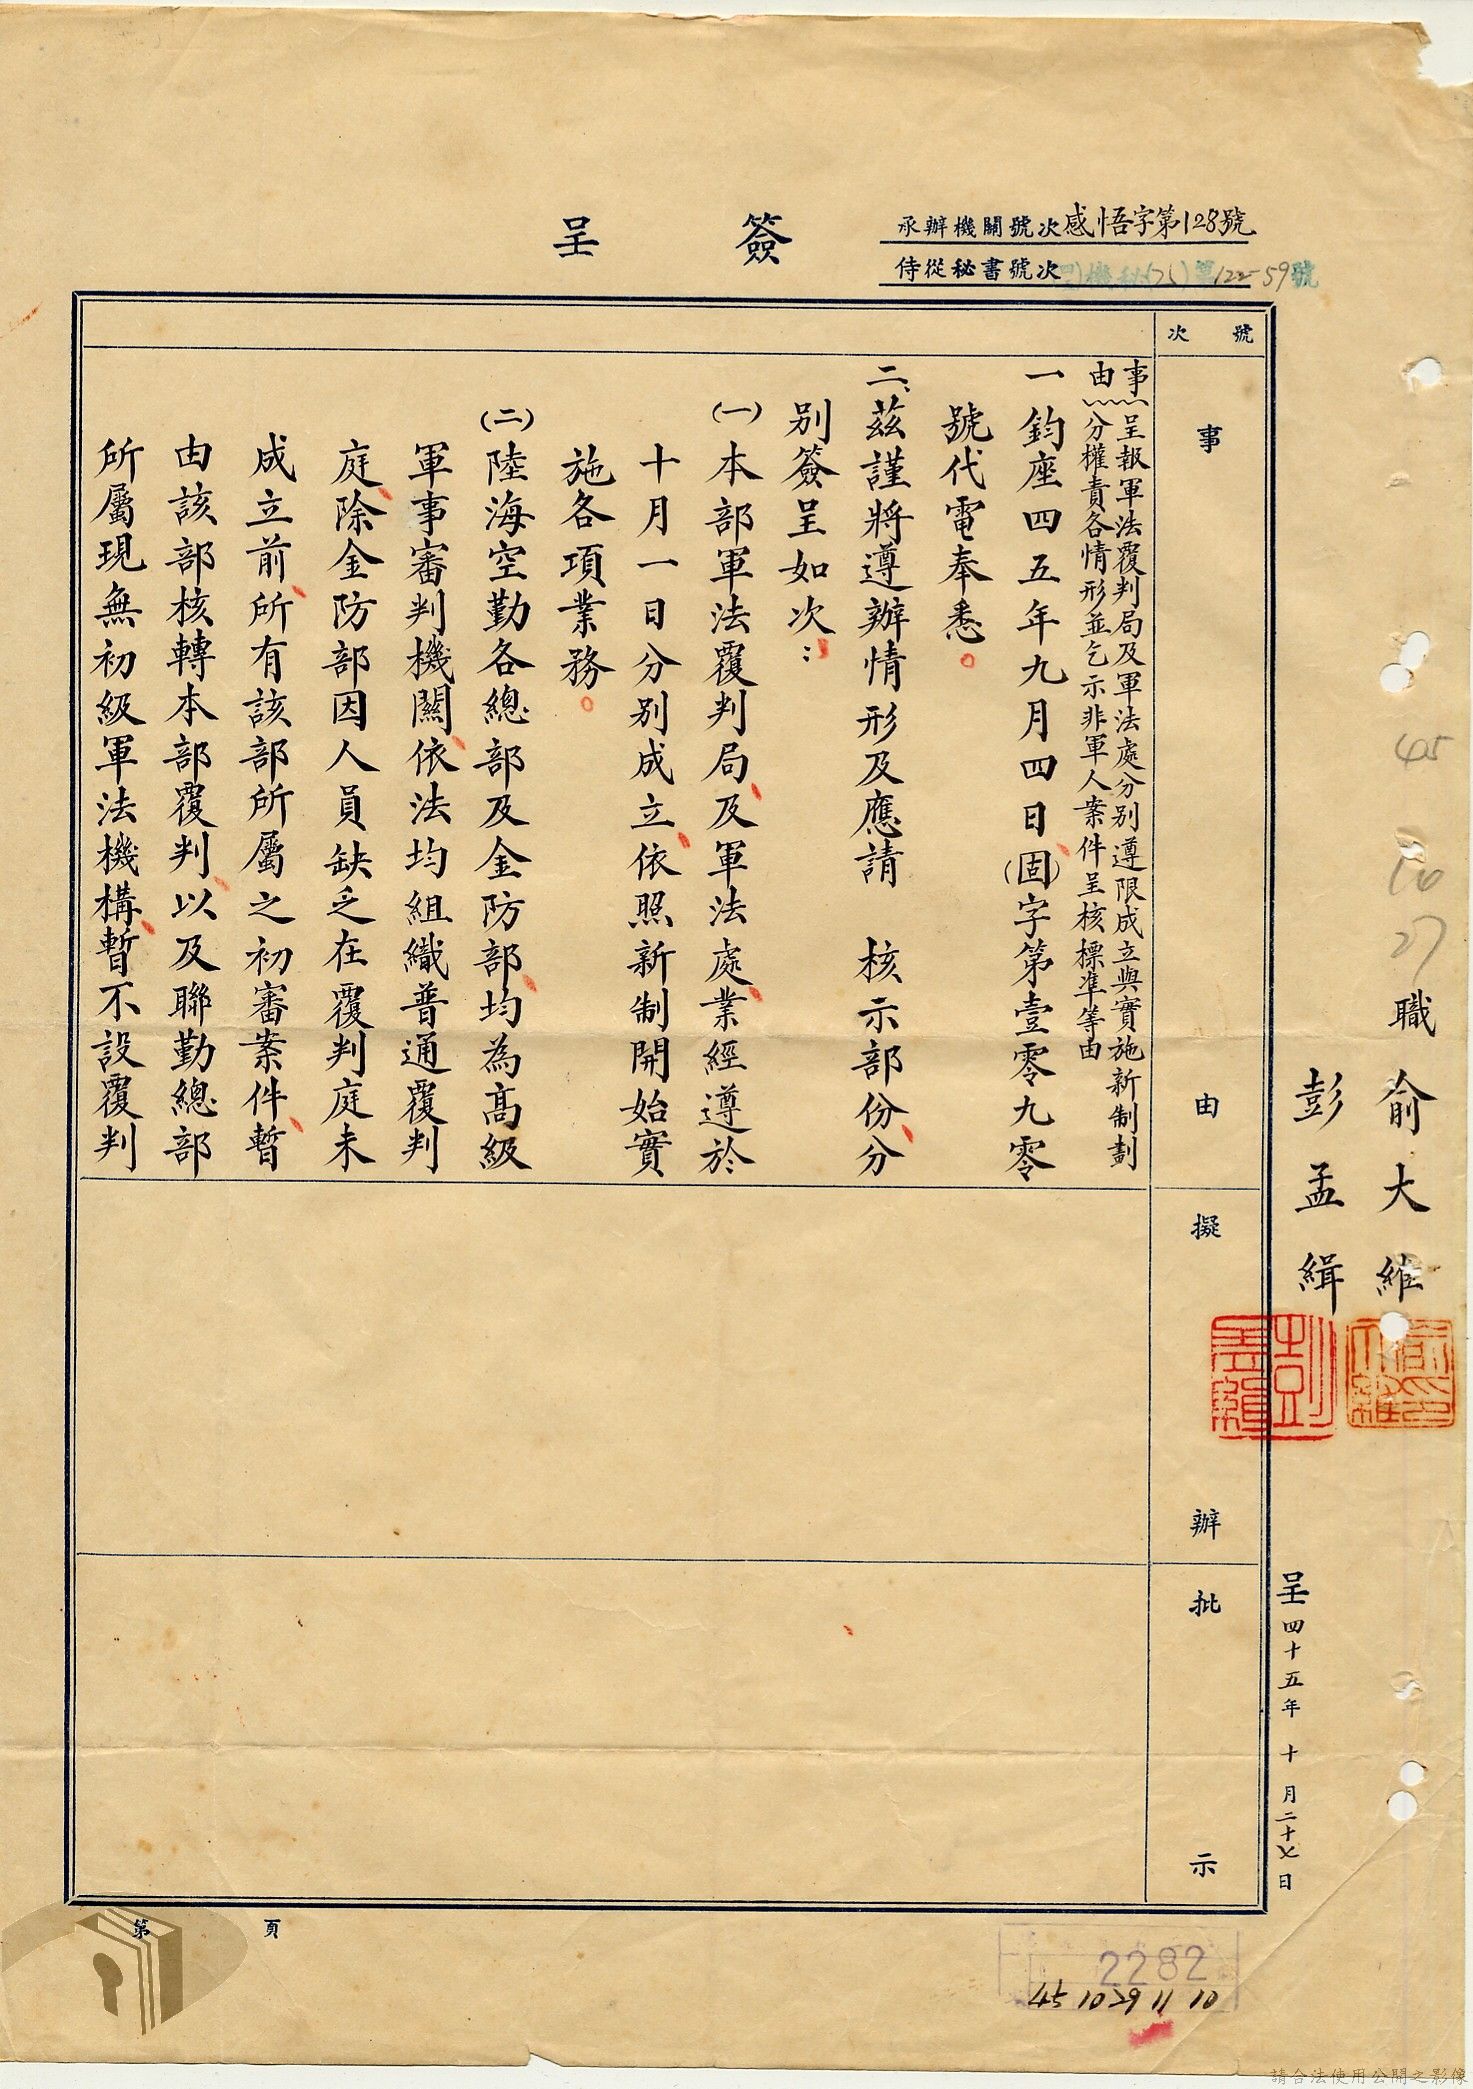 簽呈
承辦機關號次感悟字第128號
侍從秘書號次(四)機秘(75)第122-59號
45
10
27
職俞大維
彭孟緝
呈四十五年十月二十七日
號次
事由
擬辦
批示
事由
呈報軍法覆判局及軍法處分別遵限成立與實施新制劃
分權責各情形並乞示非軍人案件呈核標準等由
一鈞座四五年九月四日(固)字第壹零九零
號代電奉悉。
二、茲謹將遵辦情形及應請 核示部份、分
別簽呈如次:
(一)本部軍法覆判局、及軍法處、業經遵於
十月一日分別成立、依照新制開始實
施各項業務。
(二)陸海空勤各總部及金防部、均為高級
軍事審判機關、依法均組織普通覆判
庭、除金防部因人員缺乏在覆判庭未
成立前、所有該部所屬之初審案件、暫
由該部核轉本部覆判、以及聯勤總部
所屬現無初級軍法機構、暫不設覆判
第 頁
2282
45 10 29 11 10
請合法使用公開之影像